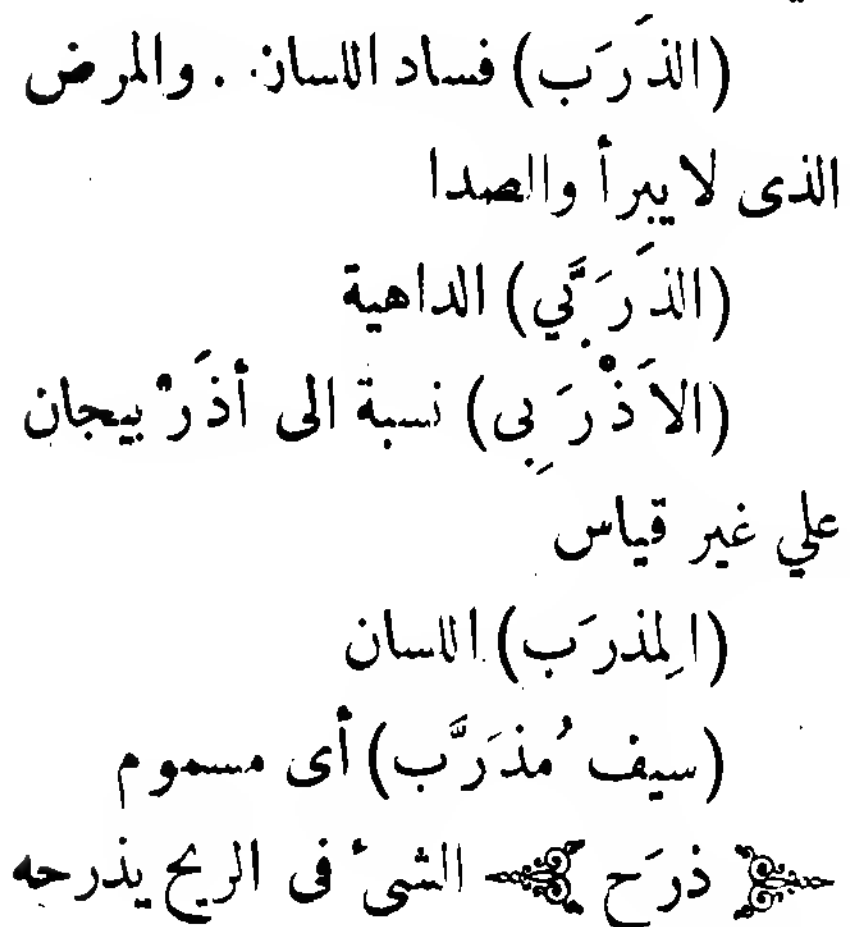 (الذَرَب) فساد اللسان . والمرض
الذى لا يبرأ والصدا
(الذَرَبَّي) الداهية
(الاَذْرَبِى) نسبة الى أذَرْبيجان
علي غير قياس
(المِذرَب) اللسان
(سيف مُذَرَّب) أى مسموم
ذرَح الشىءَ فى الريح يذرحه